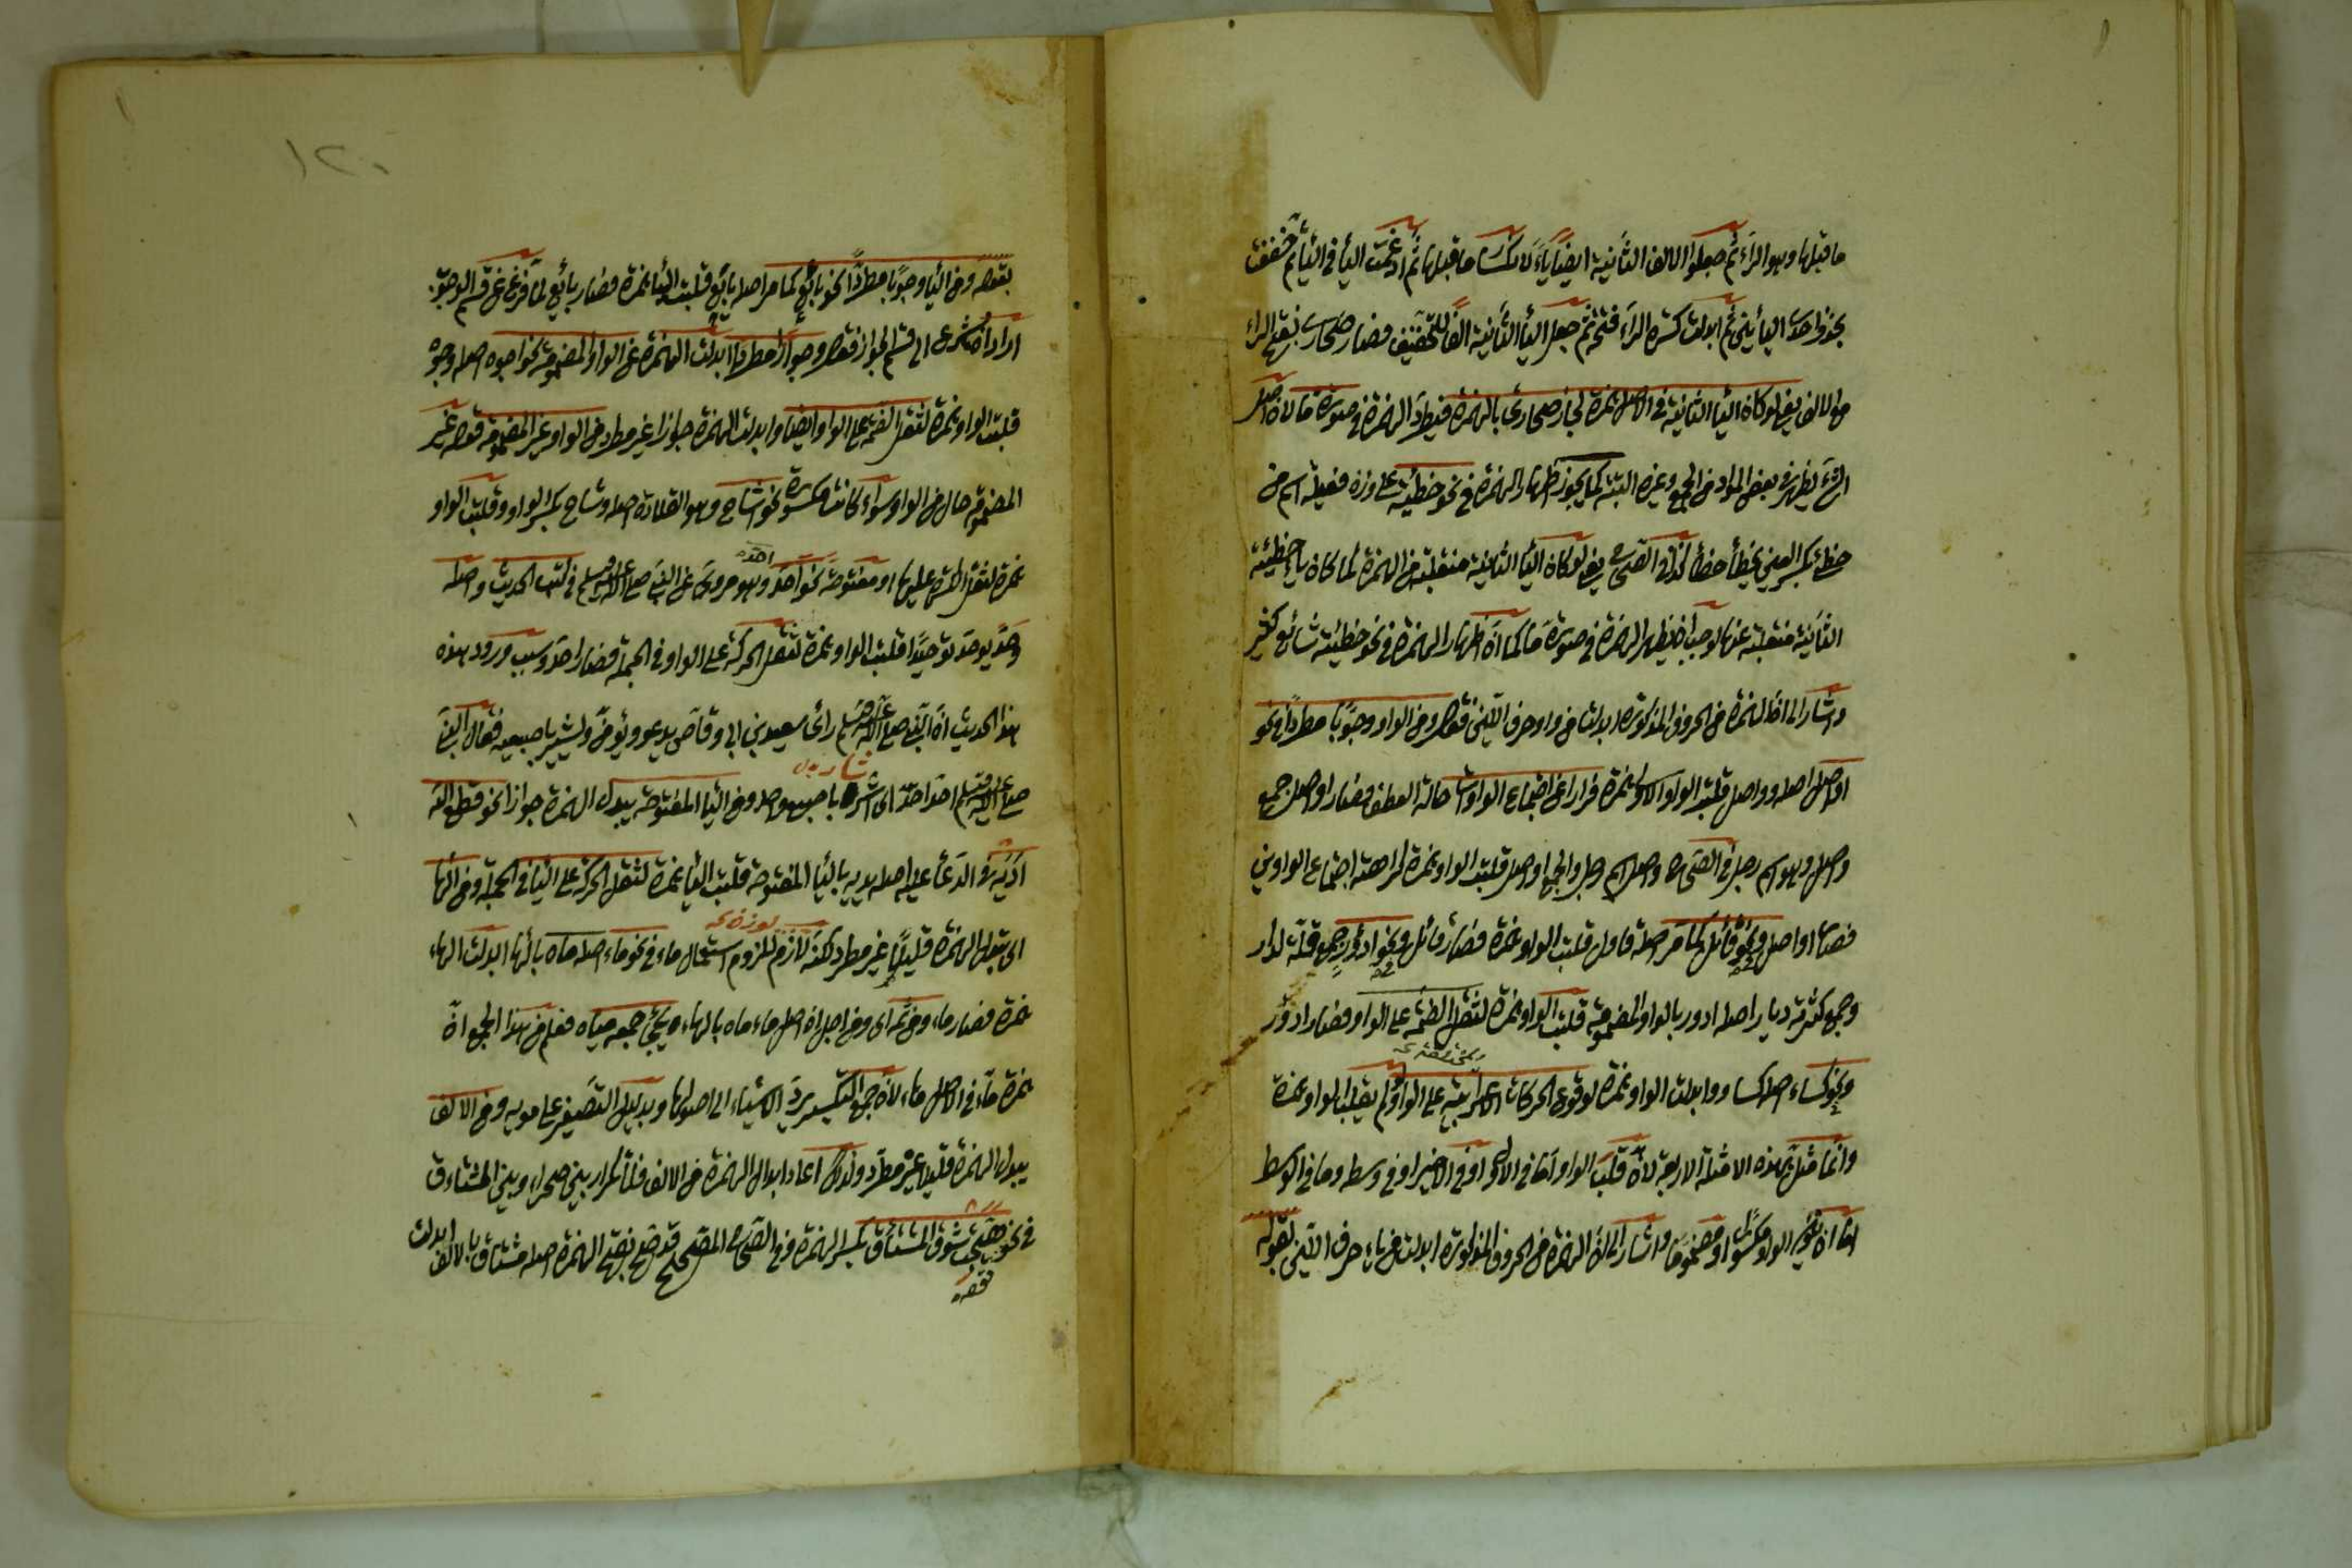 ما قبلها وهو الراء ثم جعلوا الالف الثانية ايضا ياء لانكسار ما قبلها ثم ادغمت الياء في الياء ثم خففت
بحذف احدى اليائين ثم ابدلت كسرة الراء فتحة ثم جعل الياء الثانية الفا للتخفيف فصار صحارى بفتح الراء
والالف يعنى لو كان الياء الثانية في الاصل همزة لجاز صحارئ بالهمزة فيظهر الهمزة في صورة ما لان اصل
الشئ يظهر في بعض المواد من الجمع وغيره البتة كما يجوز اظهار الهمزة في نحو خطيئة على وزن فعيلة اسم من
خطئ بكسر العين يخطأ خطأ كذا في الصحاح يعنى لو كان الياء الثانية منقلبة من الهمزة كما كان ياء خطيئة
الثانية منقلبة عنها لوجب ان يظهر الهمزة في صورة ما كما ان اظهار الهمزة في نحو خطيئة شائع كثير
واشار الى ان الهمزة من الحروف المذكورة ابدلت من واو حرف اللين بقوله ومن الواو وجوبا مطردا نحو
اواصل اصله وواصل قلبت الواو الاولى همزة فرارا عن اجتماع الواوات حالة العطف فصار اواصل جمع
واصل وهو اسم رجل في الصحاح واصل اسم رجل والجمع اواصل قلبت الواو همزة كراهة اجتماع الواوين
فصار اواصل ونحو قائل كما مر اصله قاول قلبت الواو همزة فصار قائل ونحو ادؤر جمع قلة لدار
وجمع كثرته ديار اصله ادور بالواو المضمومة قلبت الواو همزة لثقل الضمة على الواو فصار ادؤر
ونحو كساء اصله كساو وابدلت الواو همزة لوقوع الحركات الاعرابية على الواو لم يقلب الواو همزة
وانما مثل بهذه الامثلة الاربعة لان قلب الواو اما في الاول او في الاخير او في وسطه وما في الوسط
اما ان يكون الواو مكسورا او مضموما واشار الى ان الهمزة من الحروف المذكورة ابدلت من ياء حرف اللين بقوله
بقوله ومن الياء وجوبا مطردا نحو بائع كما مر اصله بايع قلبت الياء همزة فصار بائع لما فرغ عن قسم الوجوب
اراد ان يشرع الى قسم الجواز فقال وجوازا مطردا ابدلت الهمزة عن الواو المضمومة نحو اجوه اصله وجوه
قلبت الواو همزة لثقل الضمة على الواو ايضا وابدلت الهمزة جوازا غير مطرد من الواو غير المضمومة قوله غير
المضمومة حال من الواو سواء كانت مكسورة نحو اشاح وهو القلادة اصله وشاح بكسر الواو وقلبت الواو
همزة لثقل الكسرة عليها او مفتوحة نحو احد وهو مروى عن النبى صلى الله عليه وسلم في كتب الحديث واصله
وحد يوحد توحيدا قلبت الواو همزة لثقل الحركة على الواو في الجملة فصار احد وسبب ورود هذه
هذا الحديث ان النبى صلى الله عليه وسلم رأى سعد بن ابى وقاص يدعو ويشير باصبعيه فقال النبى
صلى الله عليه وسلم احد احد اى اشر باصبع واحد ومن الياء المفتوحة يبدل الهمزة جوازا نحو قطع الله
اديه في الدعاء عليه اصله يديه بالياء المفتوحة قلبت الياء همزة لثقل الحركة على الياء في الجملة ومن الهاء
اى يبدل الهمزة قليلا غير مطرد لكنه لازم للزوم استعمال ماء في نحو ماء اصله ماه بالهاء ابدلت الهاء
همزة فصار ماء ومن ثمه اى ومن اجل ان اصل ماء ماه بالهاء ويجئ جمعه مياه فعلم من هذا الجمع ان
همزة ماء في الاصل هاء لان جمع التكسير يرد الاشياء الى اصولها وبدليل التصغير على مويه ومن الالف
يبدل الهمزة قليلا غير مطرد ولذلك اعاد ابدال الهمزة من الالف فلا تكرار بين صحراء وبين المشتاق
في نحو هيجت شوق المشتئق بكسر الهمزة وفي الصحاح المصحح قد صح بفتح الهمزة اصله مشتاق بالالف ابدلت